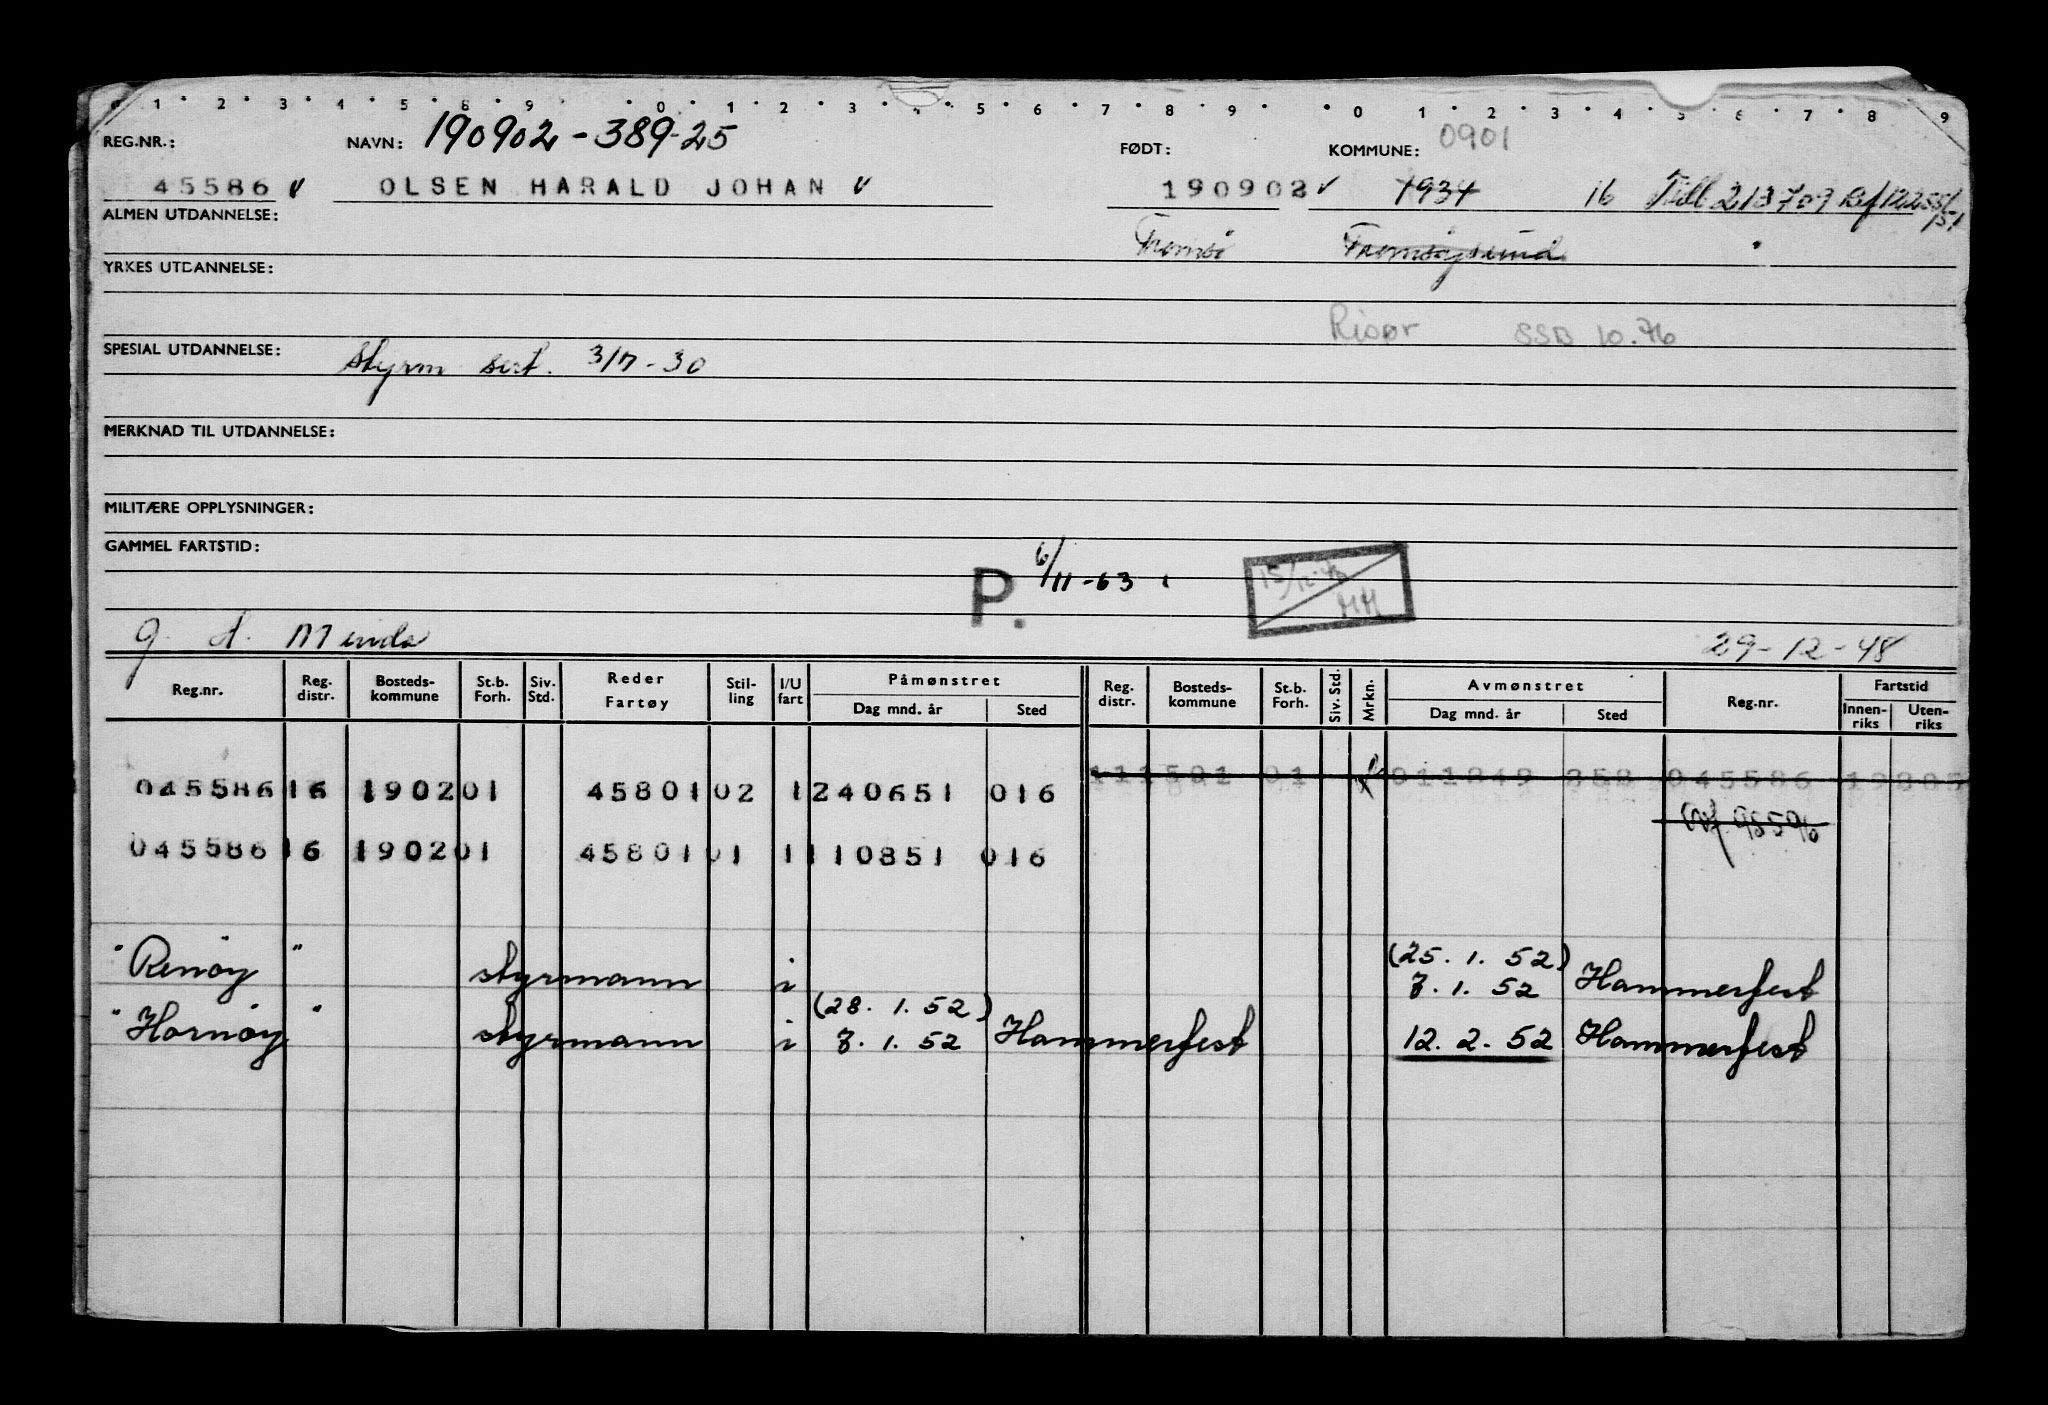 0 1 2 3 4 5 6 9 0 1 2 3 4 5 6 7 8 9 0 1 2 3 4 5 6 7 8 9
REG.NR.: NAVN: 190902-389-25 FØDT: KOMMUNE: 0901
45586 v OLSEN HARALD JOHAN v 190902 v 1934 16 Till 213709
ALMEN UTDANNELSE:
Tromsø Tromsøysund
YRKES UTDANNELSE:
Risør SSB 10.76
SPESIAL UTDANNELSE: Styrm sert. 3/7-30
MERKNAD TIL UTDANNELSE:
MILITÆRE OPPLYSNINGER:
GAMMEL FARTSTID:
P. 6/11-63
15/12-76 MH
g. A. 29-12-48
Reg.nr. Reg. distr. Bosteds-kommune St.b. Forh. Siv. Std. Reder Fartøy Stil-ling I/U fart Påmønstret Dag mnd. år Sted Reg. distr. Bosteds-kommune St.b. Forh. Siv. Std. Mrkn. Avmønstret Dag mnd. år Sted Reg.nr. Fartstid Innen-riks Uten-riks
045586 16 1902 01 45801 02 1 240651 016 111501 01 011249 258 045586
045586 16 1902 01 45801 01 1 110851 016
"Renøy" styrmann i (25. 1. 52) 7. 1. 52 Hammerfest
"Hornøy" styrmann i (28. 1. 52) 7. 1. 52 Hammerfest 12. 2. 52 Hammerfest